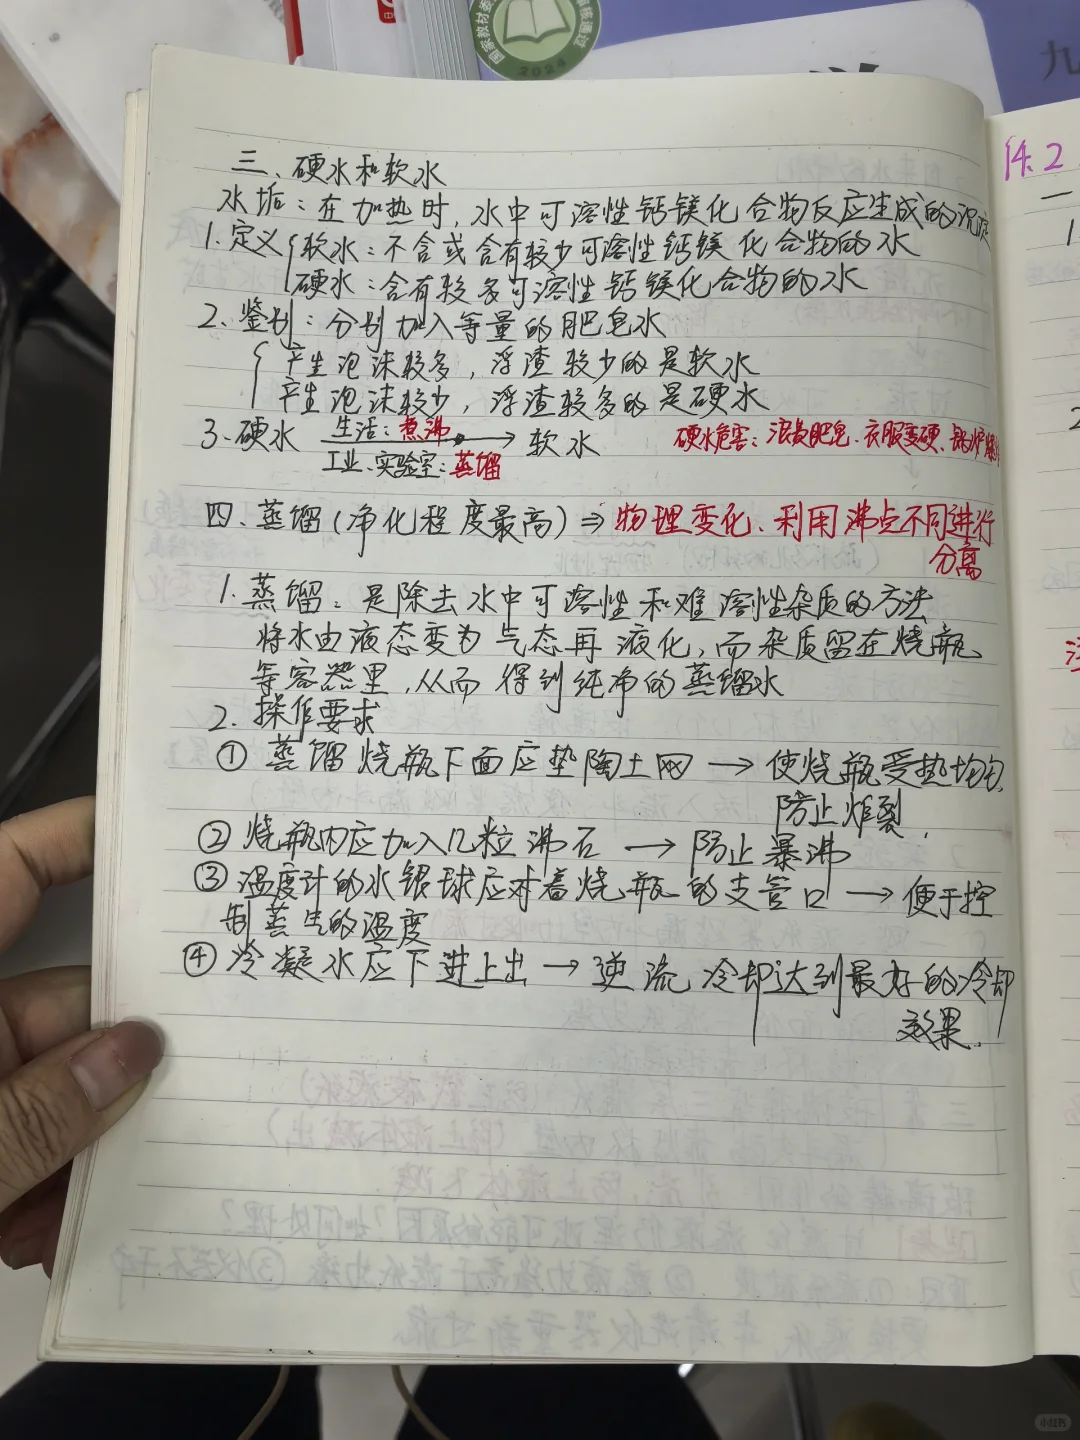 三、硬水和软水
水垢：在加热时，水中可溶性钙镁化合物反应生成的沉淀
1.定义 软水：不含或含有较少可溶性钙镁化合物的水
硬水：含有较多可溶性钙镁化合物的水
2.鉴别：分别加入等量的肥皂水
产生泡沫较多，浮渣较少的是软水
产生泡沫较少，浮渣较多的是硬水
3.硬水 生活：煮沸 → 软水 硬水危害：浪费肥皂、衣服变硬、锅炉爆炸
工业、实验室：蒸馏
四、蒸馏(净化程度最高)⇒物理变化、利用沸点不同进行
分离
1.蒸馏：是除去水中可溶性和难溶性杂质的方法
将水由液态变为气态再液化，而杂质留在烧瓶
等容器里，从而得到纯净的蒸馏水
2.操作要求
①蒸馏烧瓶下面应垫陶土网→使烧瓶受热均匀,
防止炸裂.
②烧瓶内应加入几粒沸石→防止暴沸
③温度计的水银球应对着烧瓶的支管口→便于控
制蒸气的温度
④冷凝水应下进上出→逆流冷却达到最好的冷却
效果.
14.2
一
1
2
九
国家教材委
审核通过
2024
小红书